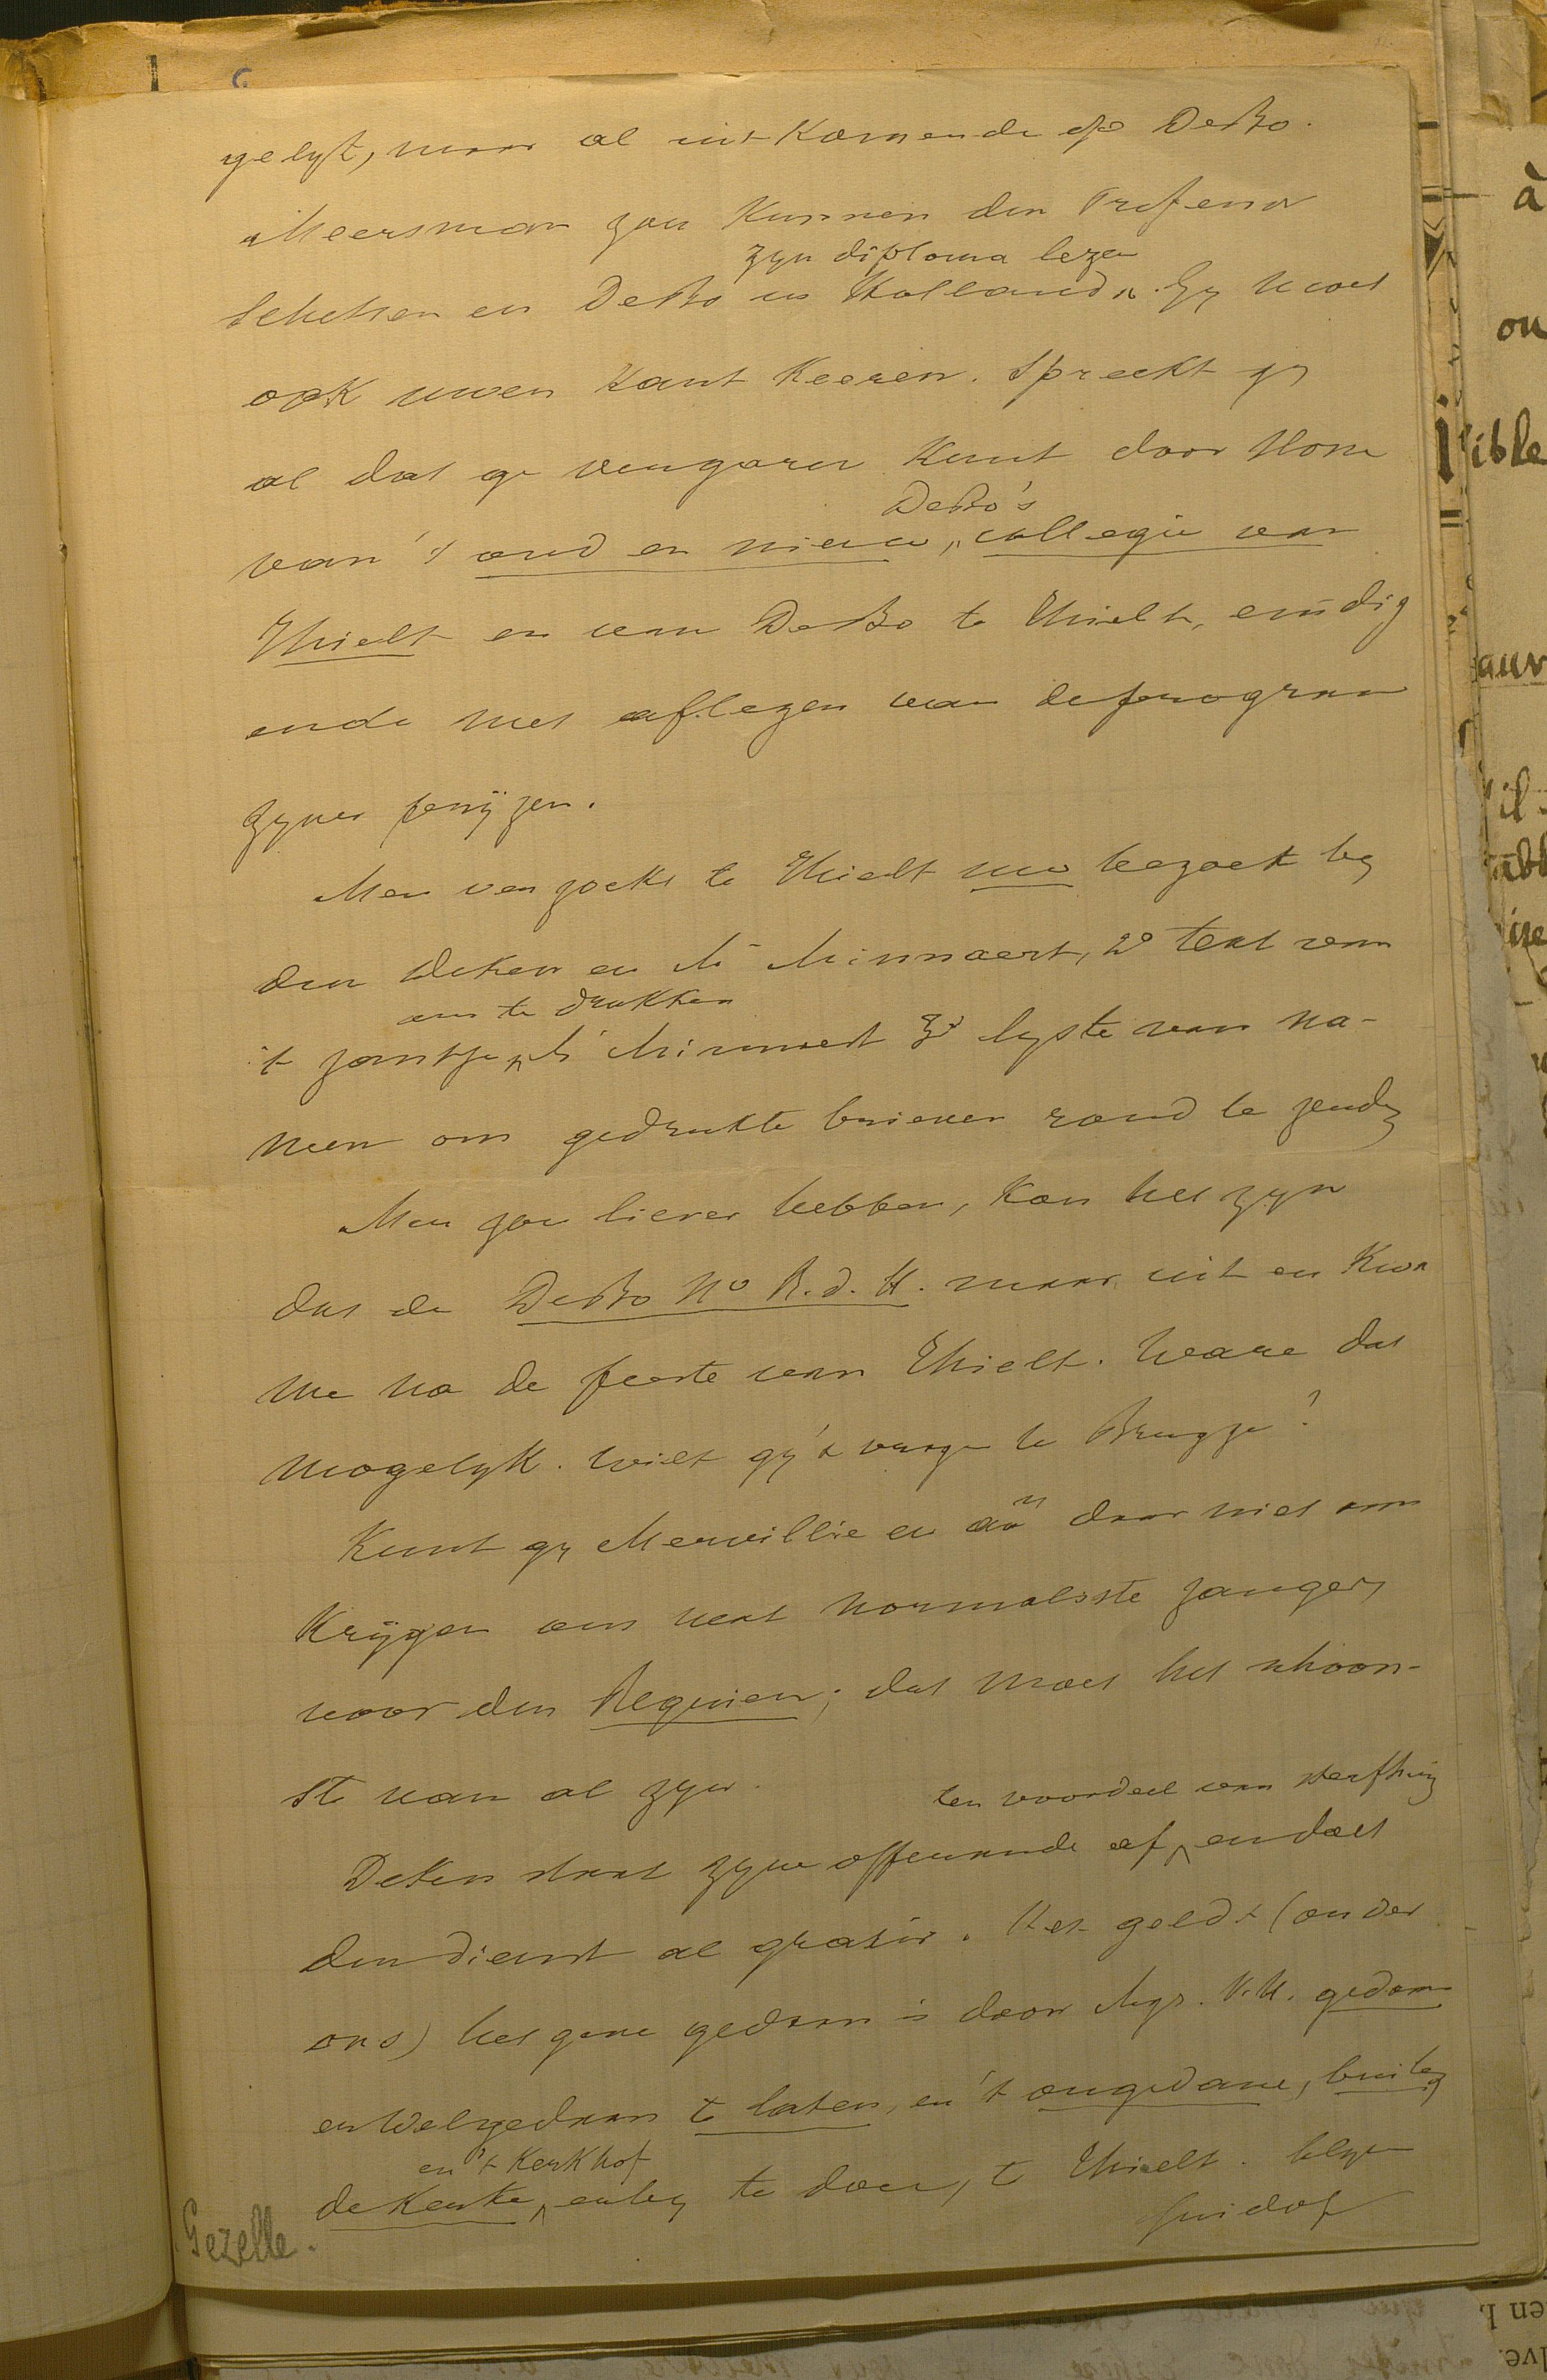 gelyk, maar al uitkomende op DeBo.
Meersman zou kunnen den Professor
zyn diploma lezen
schetsen en DeBo in Holland. Gy moet
ook uwen kant keeren. Spreekt gy
al dat ge vergaren kunt door Hom
DeBo's
van 't oud en nieuw, collegie van
Thielt en van DeBo te Thielt, eindig
ende met aflezen van de program
zyner pryzen.
Men verzoekt te Thielt uw bezoek by
den Deken en Mr Minnaert, 2o tekst van
om te drukken
't zantje, Mr Minnaert 3o lyste van na-
men om gedrukte brieven rond te zenden
Men zou liever hebben, kan het zyn
dat de DeBo No R.d.H. maar uit en kwa
me na de feeste van Thielt. Ware dat
mogelyk. Wilt gy 't vragen te Brugge?
Kunt gy Mervillie en aan daar niet aan
krygen om wat normalsste zangers
voor den Requiem; dat moet het schoon-
ste van al zyn.
ten voordeel van sterfhuis
Deken staat zyne offerande af en doet
den dienst al gratis. Het geldt (onder
ons) het gene gedaan is door Mgr. V.H. gedaan
en welgedaan te laten, en 't ongedane, buiten
en 't Kerkhof
de Kerke, enby te doen, te Thielt. blyve
Guido G
Gezelle.
à
ou
ible
il
en